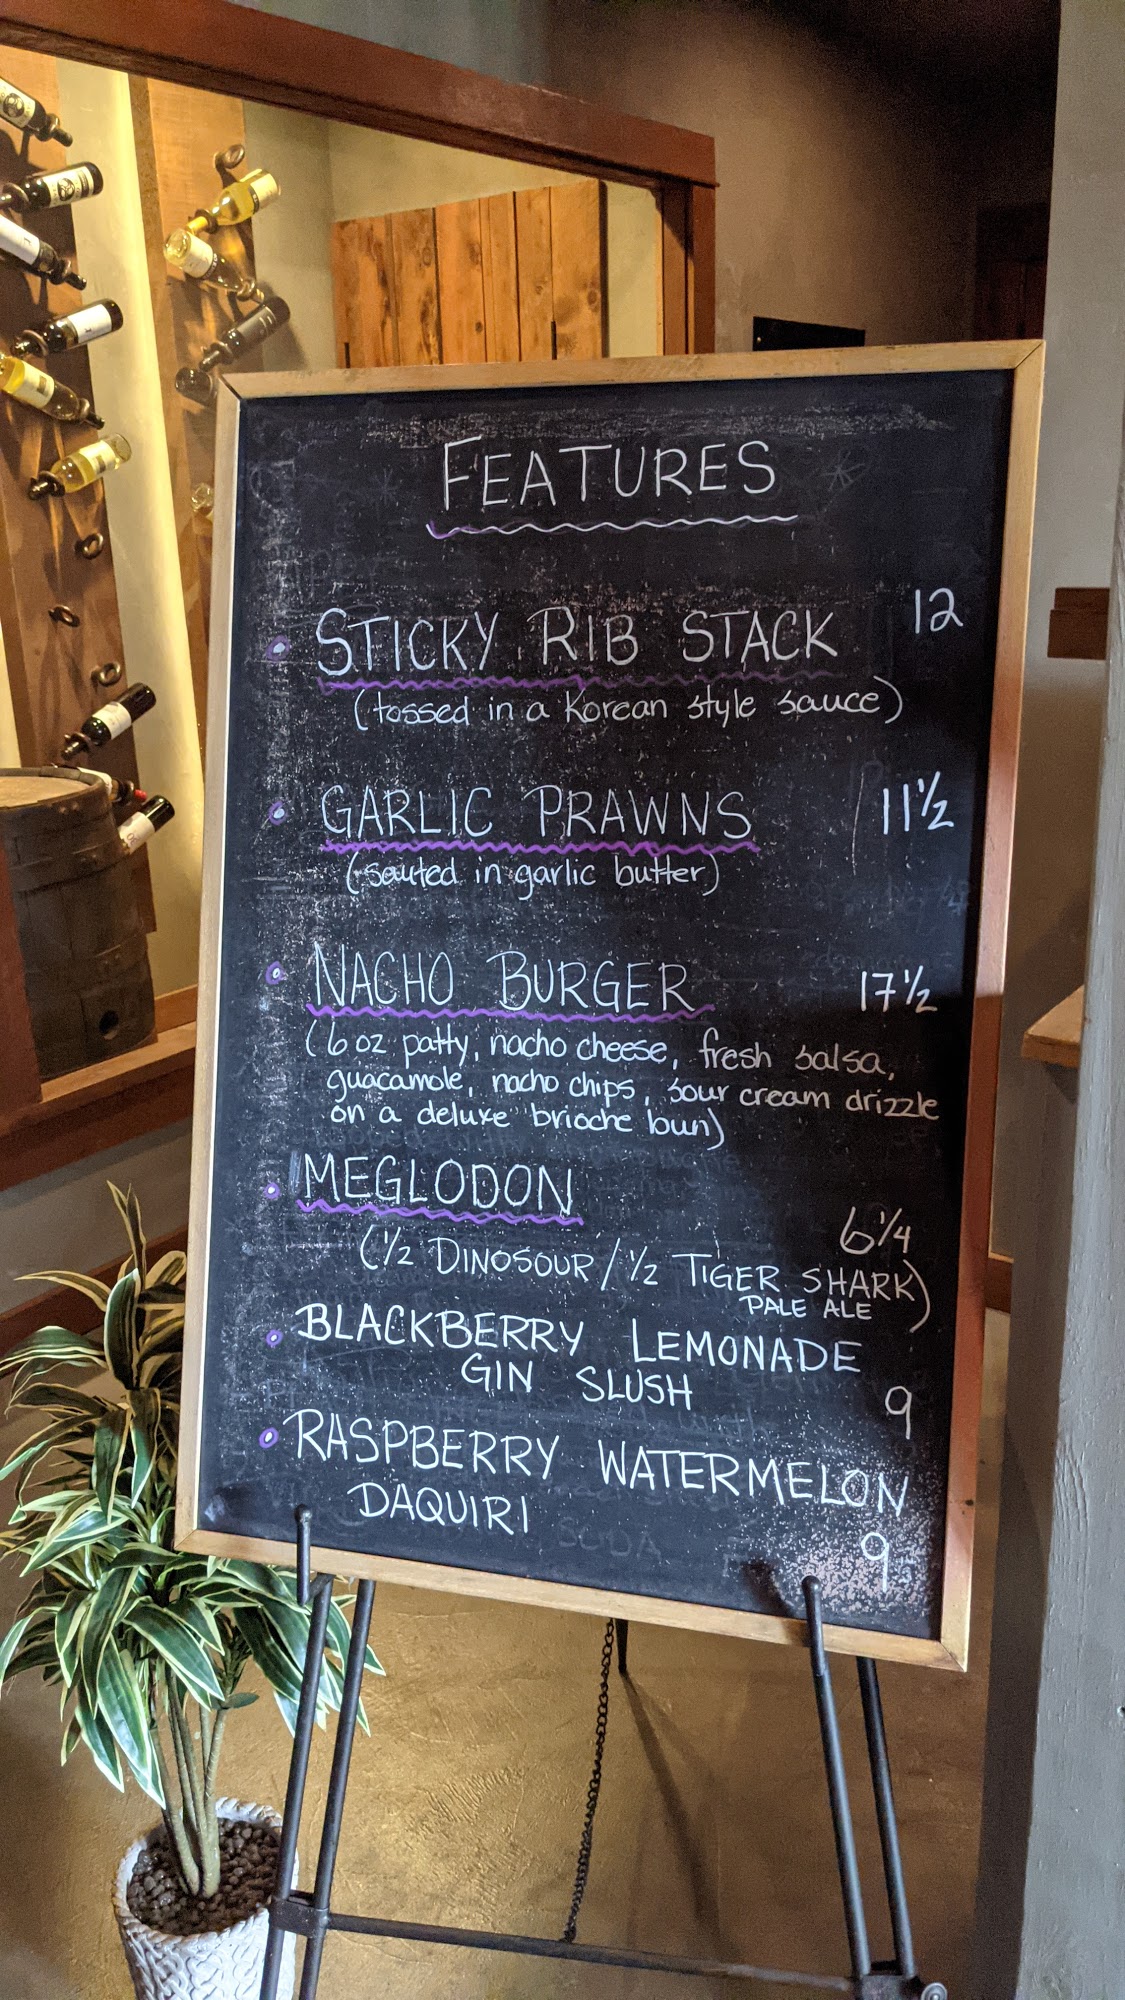 FEATURES
STICKY RIB STACK 12
(tossed in a Korean style sauce)
GARLIC PRAWNS 11 1/2
(sauted in garlic butter)
NACHO BURGER 17 1/2
(6 oz patty, nacho cheese, fresh salsa,
guacamole, nacho chips, sour cream drizzle
on a deluxe brioche bun)
MEGLODON
6 1/4
(1/2 DINOSOUR / 1/2 TIGER SHARK)
PALE ALE
BLACKBERRY LEMONADE
GIN SLUSH
9
RASPBERRY WATERMELON
DAQUIRI
SODA
9